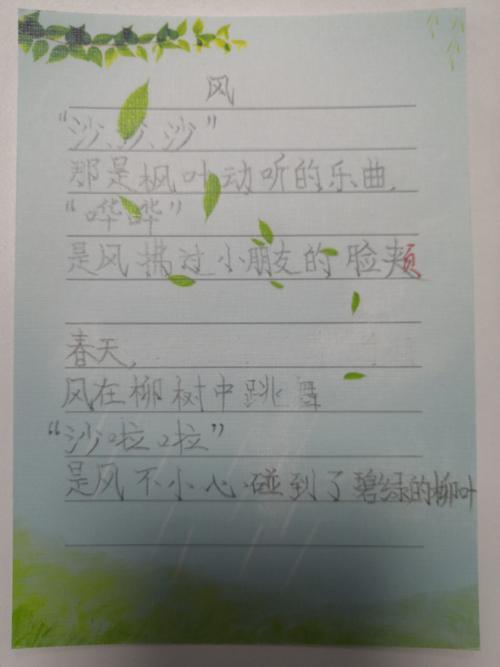 风
“沙、沙、沙”
那是枫叶动听的乐曲.
“哗哗”
是风拂过小朋友的脸颊
春天,
风在柳树中跳舞
“沙啦啦”
是风不小心碰到了碧绿的柳叶